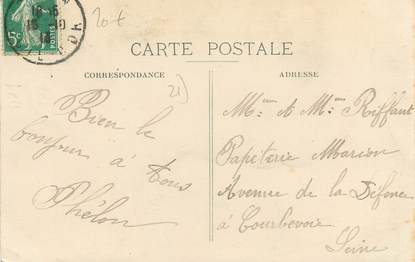 20t
5c
CARTE POSTALE
CORRESPONDANCE
ADRESSE
21)
Bien le
bonjour à tous
Phélon
Mme & Mme Riffaut
Papeterie Marion
Avenue de la Défence
à Courbevoie
Seine